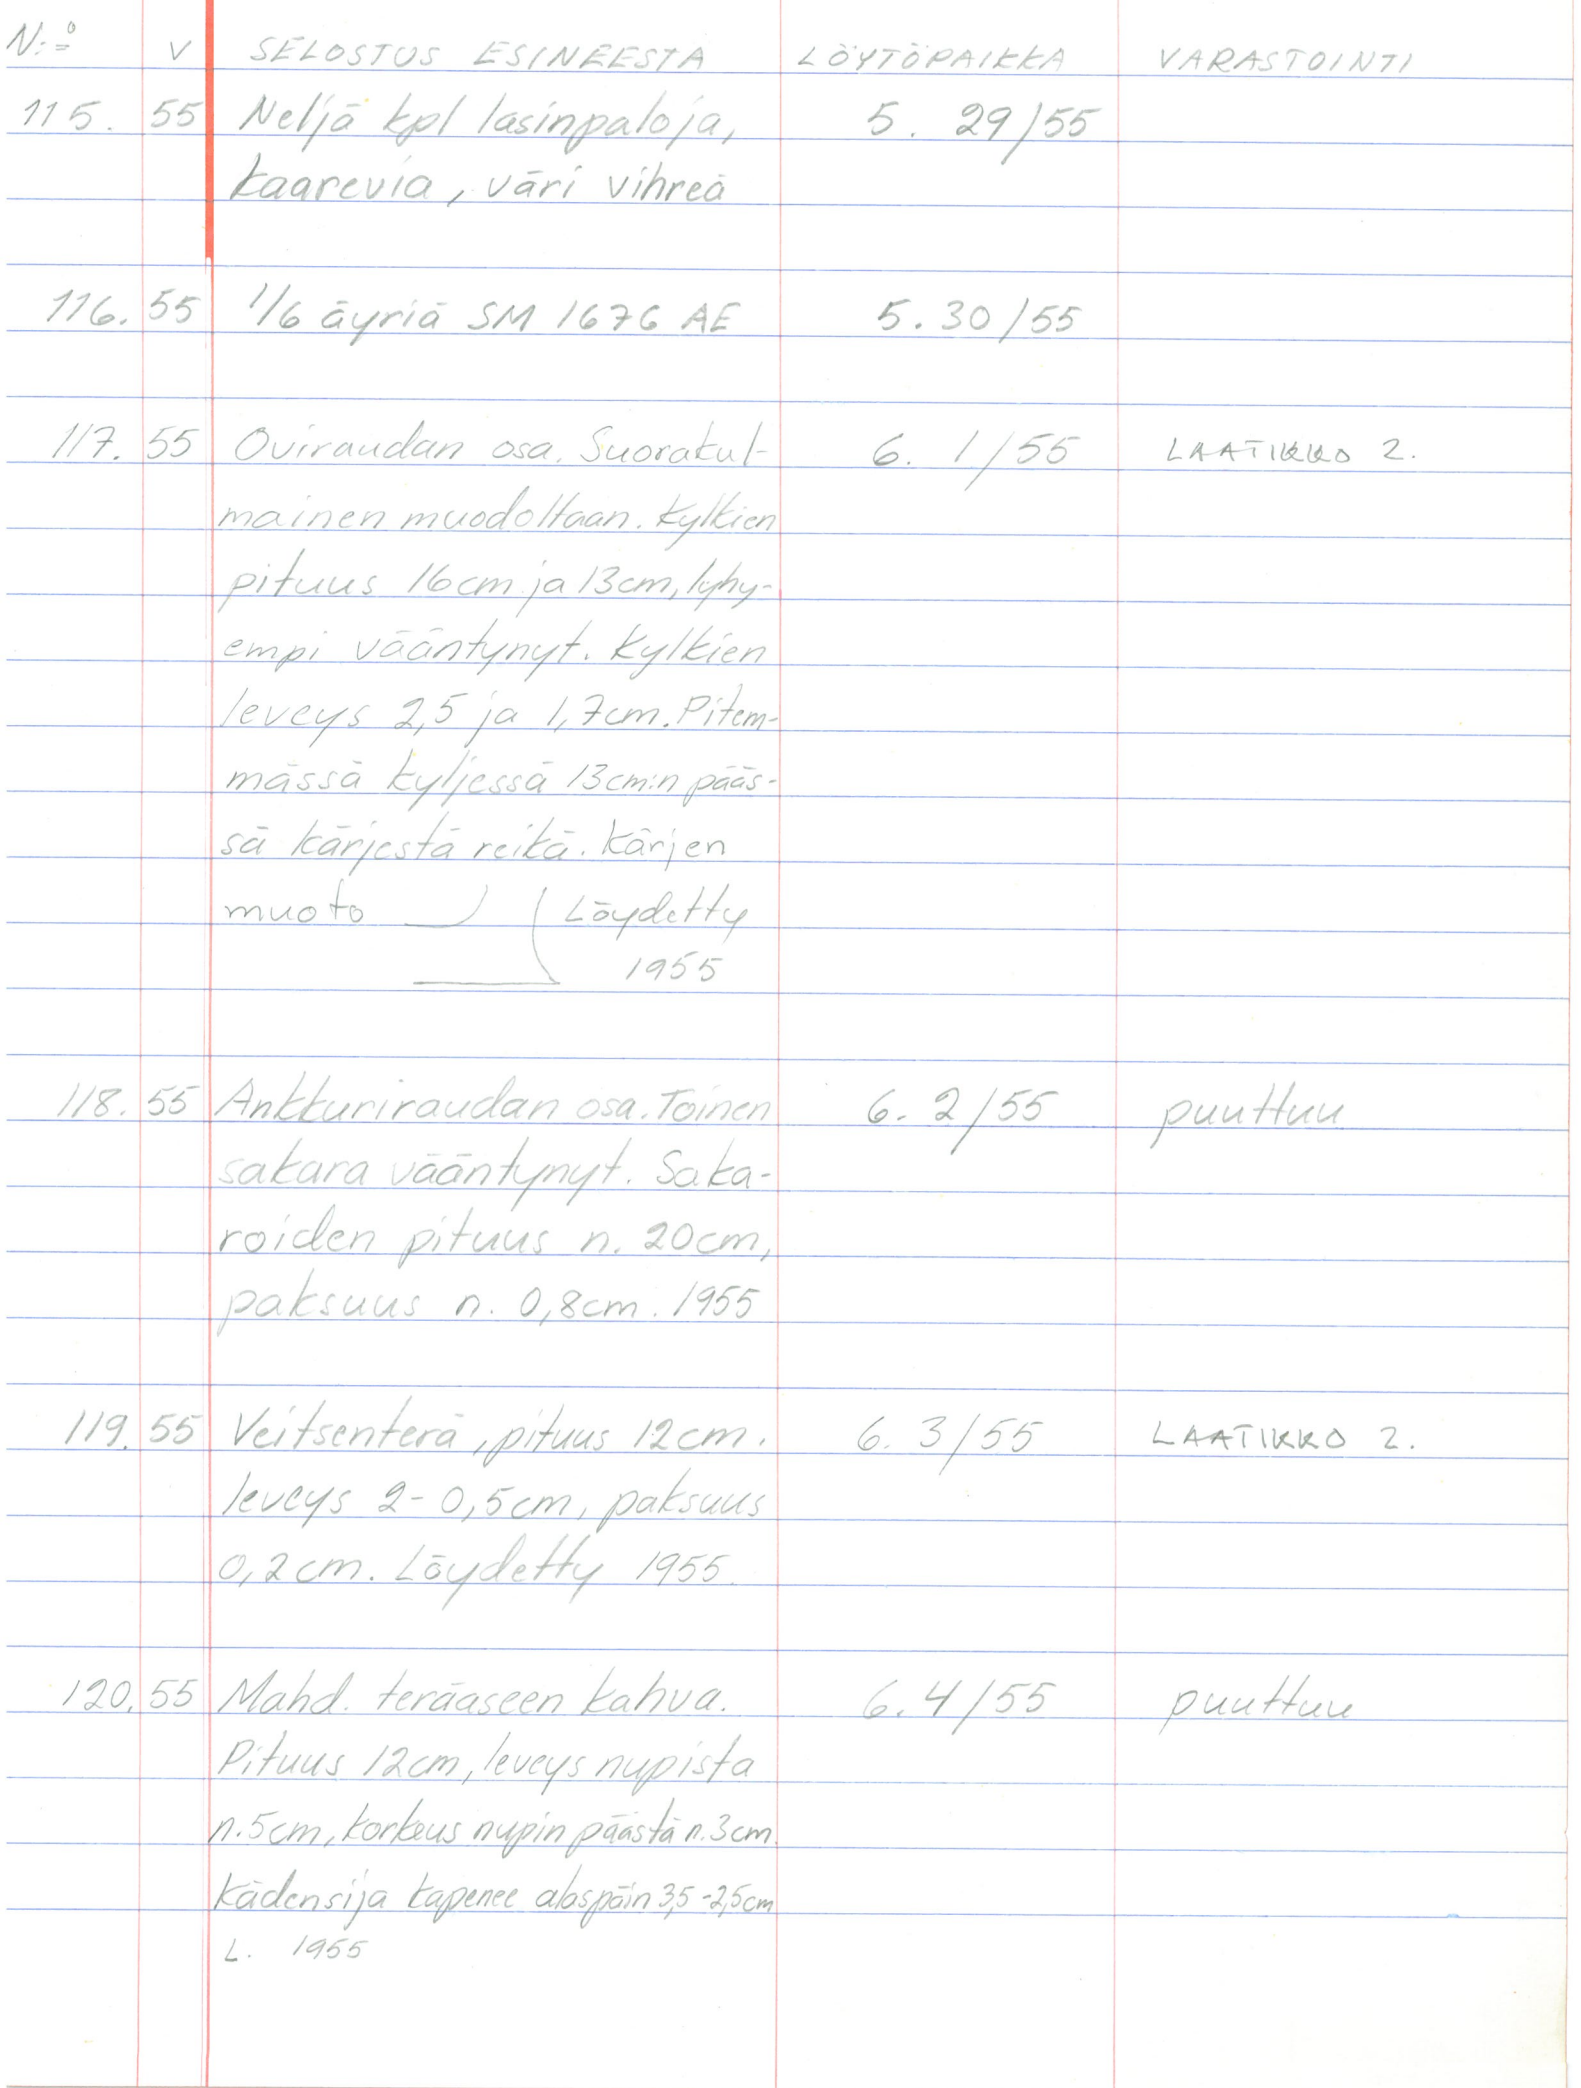 N:o V SELOSTUS ESINEESTÄ LÖYTÖPAIKKA VARASTOINTI
115. 55 Neljä kpl lasinpaloja, 5. 29/55
kaarevia, väri vihreä
116. 55 1/6 äyriä SM 1676 AE 5. 30/55
117. 55 Oviraudan osa. Suorakul- 6. 1/55 LAATIKKO 2.
mainen muodoltaan. Kylkien
pituus 16cm ja 13cm, lyhy-
empi vääntynyt. Kylkien
leveys 2,5 ja 1,7cm. Pitem-
mässä kyljessä 13cm:n pääs-
sä kärjestä reikä. Kärjen
muoto Löydetty
1955
118. 55 Ankkuriraudan osa. Toinen 6. 2/55 puuttuu
sakara vääntynyt. Saka-
roiden pituus n. 20cm,
paksuus n. 0,8cm. 1955
119. 55 Veitsenterä, pituus 12cm. 6. 3/55 LAATIKKO 2.
leveys 2-0,5cm, paksuus
0,2cm. Löydetty 1955.
120. 55 Mahd. teräaseen kahva. 6. 4/55 puuttuu
Pituus 12cm, leveys nupista
n. 5cm, korkeus nupin päästä n. 3cm.
Kädensija kapenee alaspäin 3,5-2,5cm
L. 1955